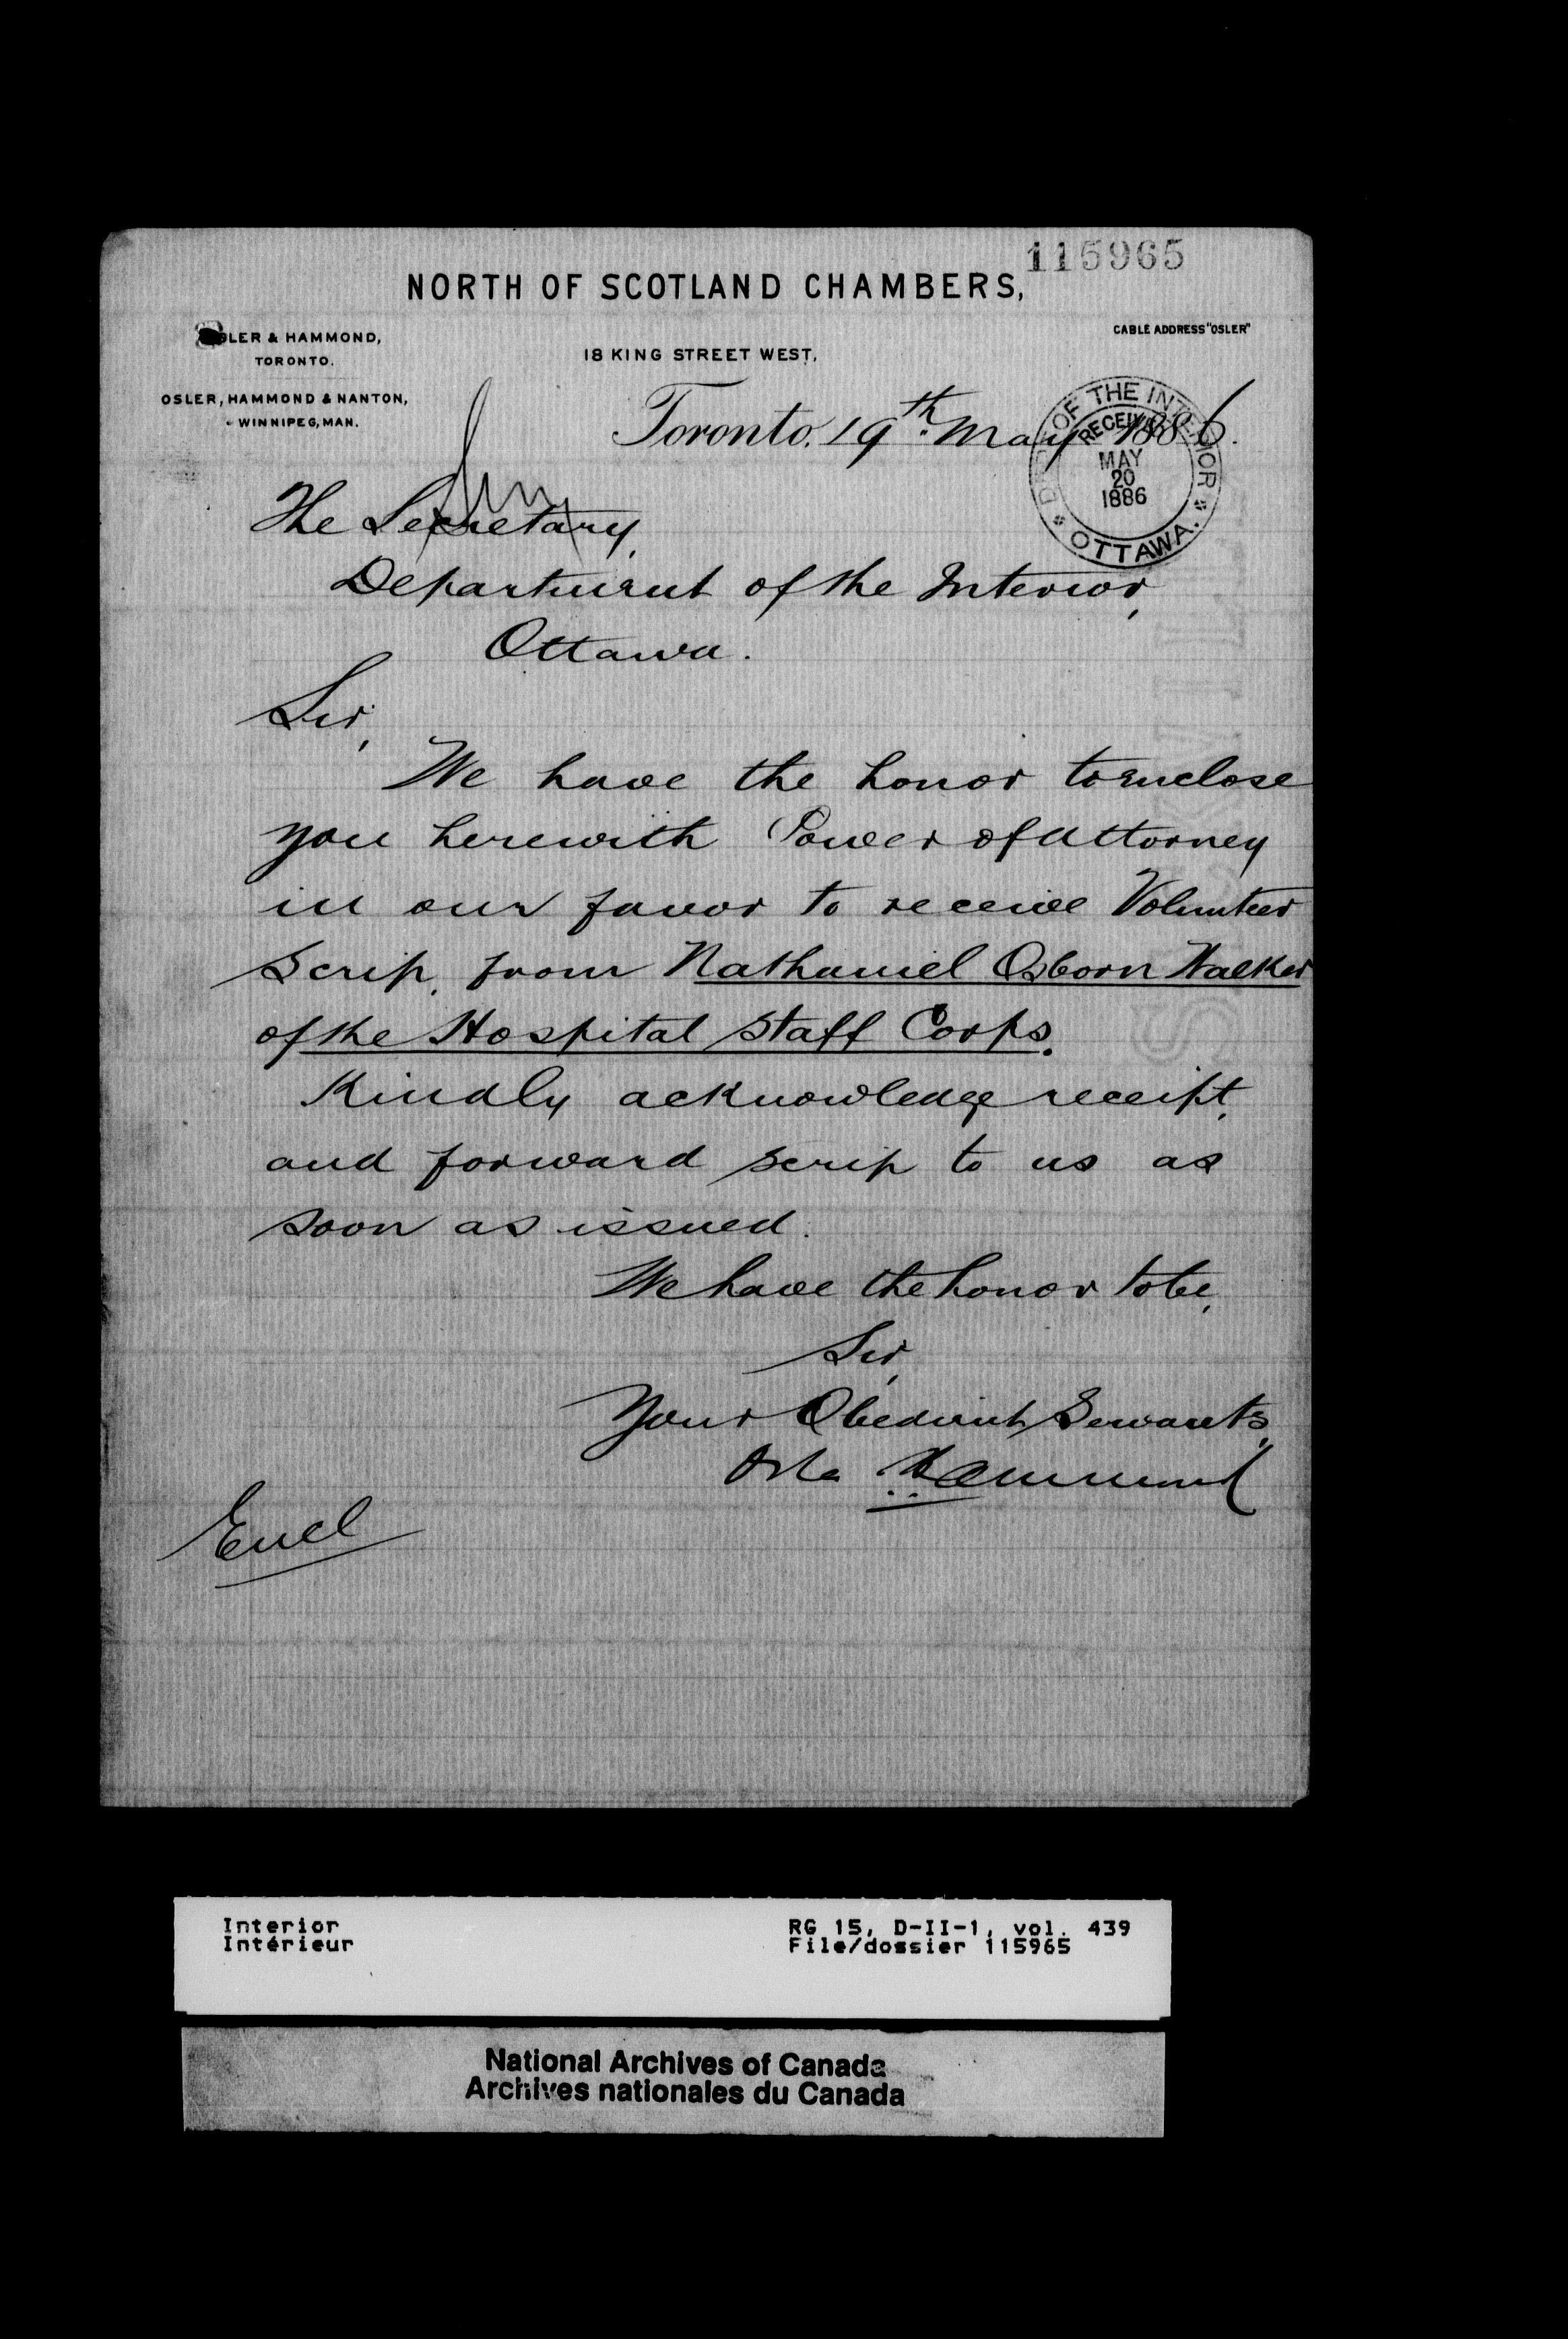 115965
NORTH OF SCOTLAND CHAMBERS,
OSLER & HAMMOND,
TORONTO.
OSLER, HAMMOND & NANTON,
WINNIPEG, MAN.
18 KING STREET WEST,
CABLE ADDRESS "OSLER"
Toronto, 19th May 1886.
DEPT OF THE INTERIOR
RECEIVED
MAY
20
1886
OTTAWA.
The Secretary,
Department of the Interior,
Ottawa.
Sir,
We have the honor to enclose
you herewith Power of Attorney
in our favor to receive Volunteer
Scrip, from Nathaniel Osborn Walker
of the Hospital Staff Corps.
Kindly acknowledge receipt,
and forward scrip to us as
soon as issued.
We have the honor to be,
Sir,
Your Obedient Servants,
Osler Hammond
Encl
Interior
Intérieur
RG 15, D-II-1, vol. 439
File/dossier 115965
National Archives of Canada
Archives nationales du Canada